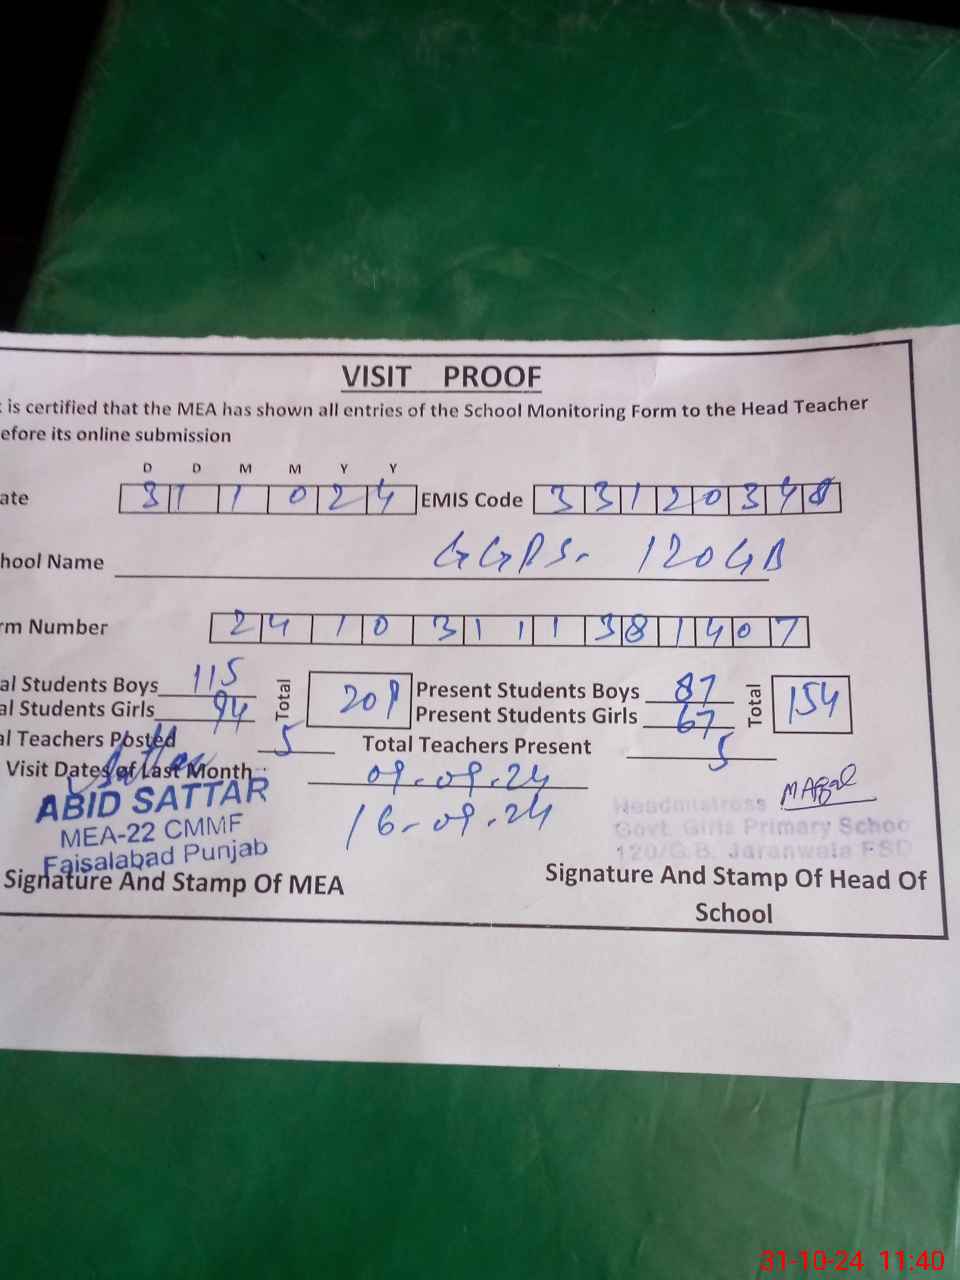 VISIT PROOF
is certified that the MEA has shown all entries of the School Monitoring Form to the Head Teacher
efore its online submission
D D M M Y Y
ate 31 10 24 EMIS Code 33120348
hool Name GGPS. 120GB
rm Number 24 10 31 11 38 1407
al Students Boys 115 Total 209 Present Students Boys 87 Total 154
al Students Girls 94 Present Students Girls 67
al Teachers Posted 5 Total Teachers Present 5
Visit Dates of Last Month: 09-09-24
16-09-24
ABID SATTAR
MEA-22 CMMF
Faisalabad Punjab
Signature And Stamp Of MEA
Headmistress
Govt. Girls Primary Schoo
120/G.B. Jaranwala FSD
Signature And Stamp Of Head Of
School
31-10-24 11:40